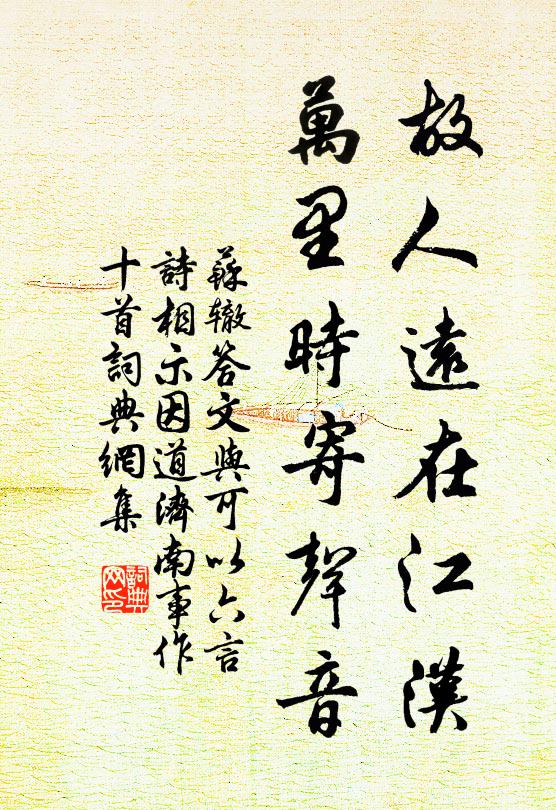 故人遠在江漢
萬里時寄聲音
蘇轍答文與可以六言
詩相示因道濟南事作
十首詞典網集
詞典
网印